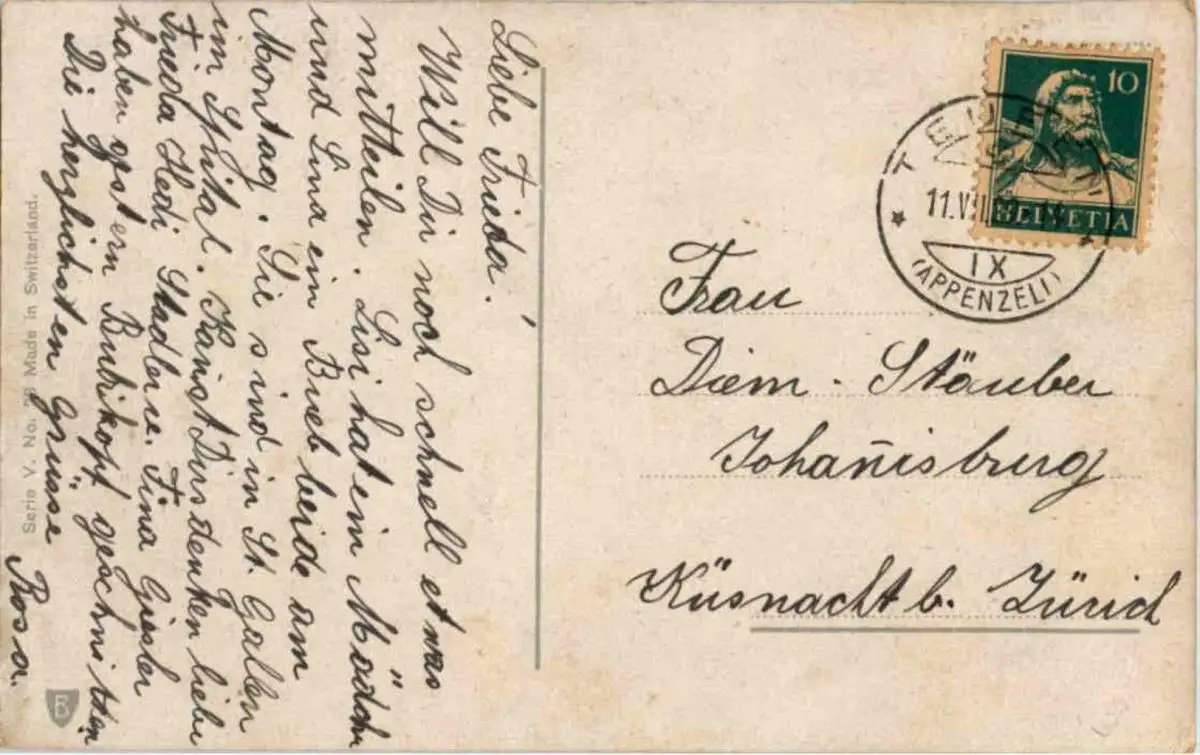 Liebe Frieda!
Will Dir noch schnell etwas
mitteilen. Lisi hat ein Mädch
und Lina ein Bueb beide am
Montag. Sie sind in St. Gallen
im Spital. Kannst Dir denken liebe
Frieda Hedi Stadler u. Fina Giesler
haben gestern Bubikopf geschnitten
Die herzlichsten Grüsse
Rosa.
Serie V. No. Made in Switzerland.
B
10
HELVETIA
TEUFEN
11.VII
IX
(APPENZELL)
Frau
Diem - Stäuber
Johannisburg
Küsnacht b. Zürich